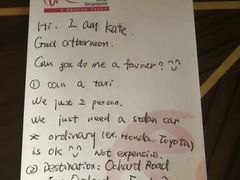 Singapore
Hi. I am Kate.
Good afternoon.
Can you do me a favour? ^_^
① Call a taxi.
We just 2 person.
We just need a sedan car
* ordinary (ex. Honda, Toyota)
is OK ^_^ Not expensive.
② Destination: Ochard Road